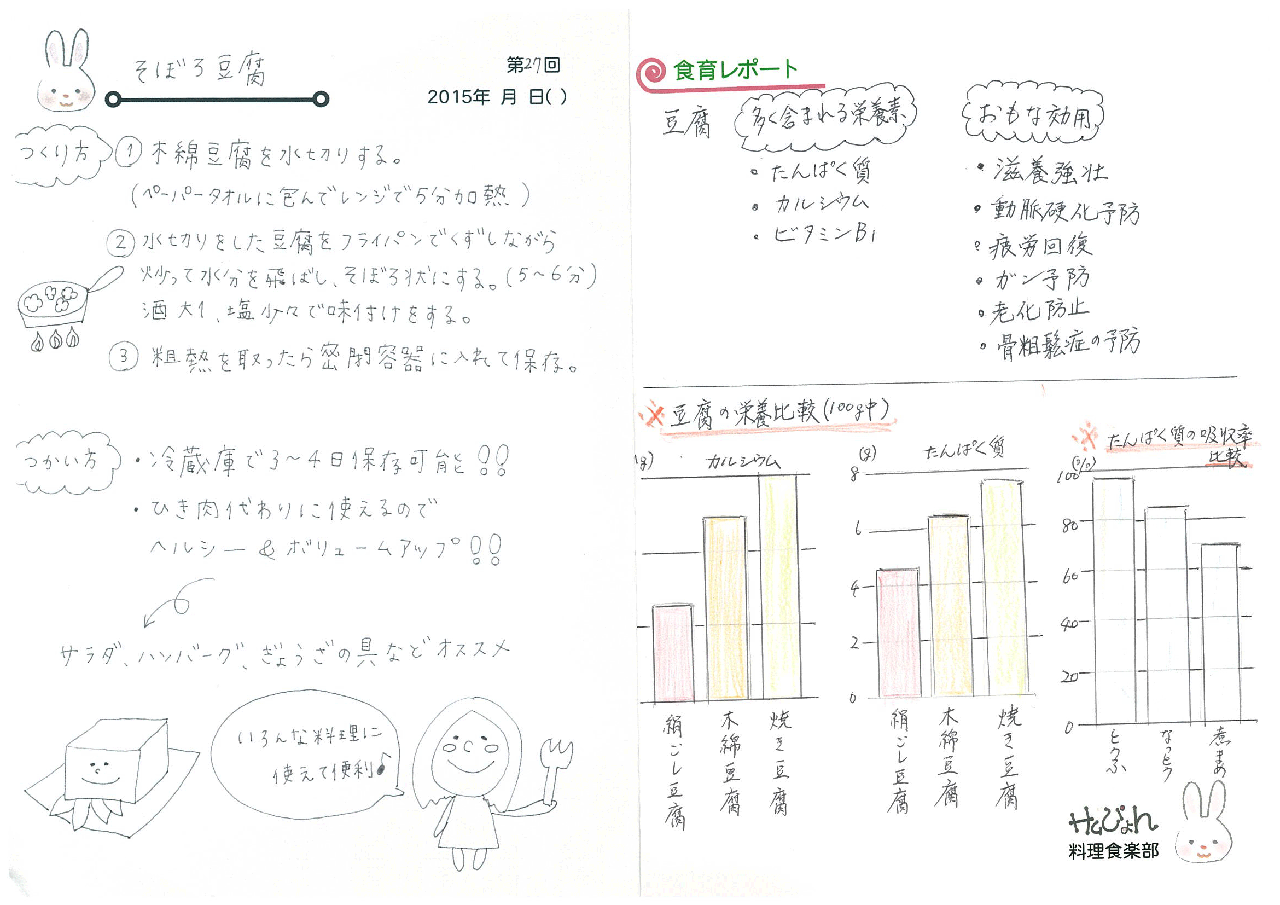 そぼろ豆腐
第27回
2015年 月 日( )
つくり方
① 木綿豆腐を水切りする。
(ペーパータオルに包んでレンジで5分加熱)
② 水切りをした豆腐をフライパンでくずしながら
炒って水分を飛ばし、そぼろ状にする。(5〜6分)
酒大1、塩少々で味付けをする。
③ 粗熱を取ったら密閉容器に入れて保存。
つかい方
・冷蔵庫で3〜4日保存可能!!
・ひき肉代わりに使えるので
ヘルシー&ボリュームアップ!!
サラダ、ハンバーグ、ぎょうざの具などオススメ
いろんな料理に
使えて便利♪
食育レポート
豆腐
多く含まれる栄養素
・たんぱく質
・カルシウム
・ビタミンB1
おもな効用
・滋養強壮
・動脈硬化予防
・疲労回復
・ガン予防
・老化防止
・骨粗鬆症の予防
※豆腐の栄養比較(100g中)
g)
カルシウム
絹ごし豆腐
木綿豆腐
焼き豆腐
(g)
たんぱく質
8
6
4
2
0
絹ごし豆腐
木綿豆腐
焼き豆腐
※たんぱく質の吸収率
比較
(%)
100
80
60
40
20
0
とうふ
なっとう
煮まめ
せぴょん
料理食楽部